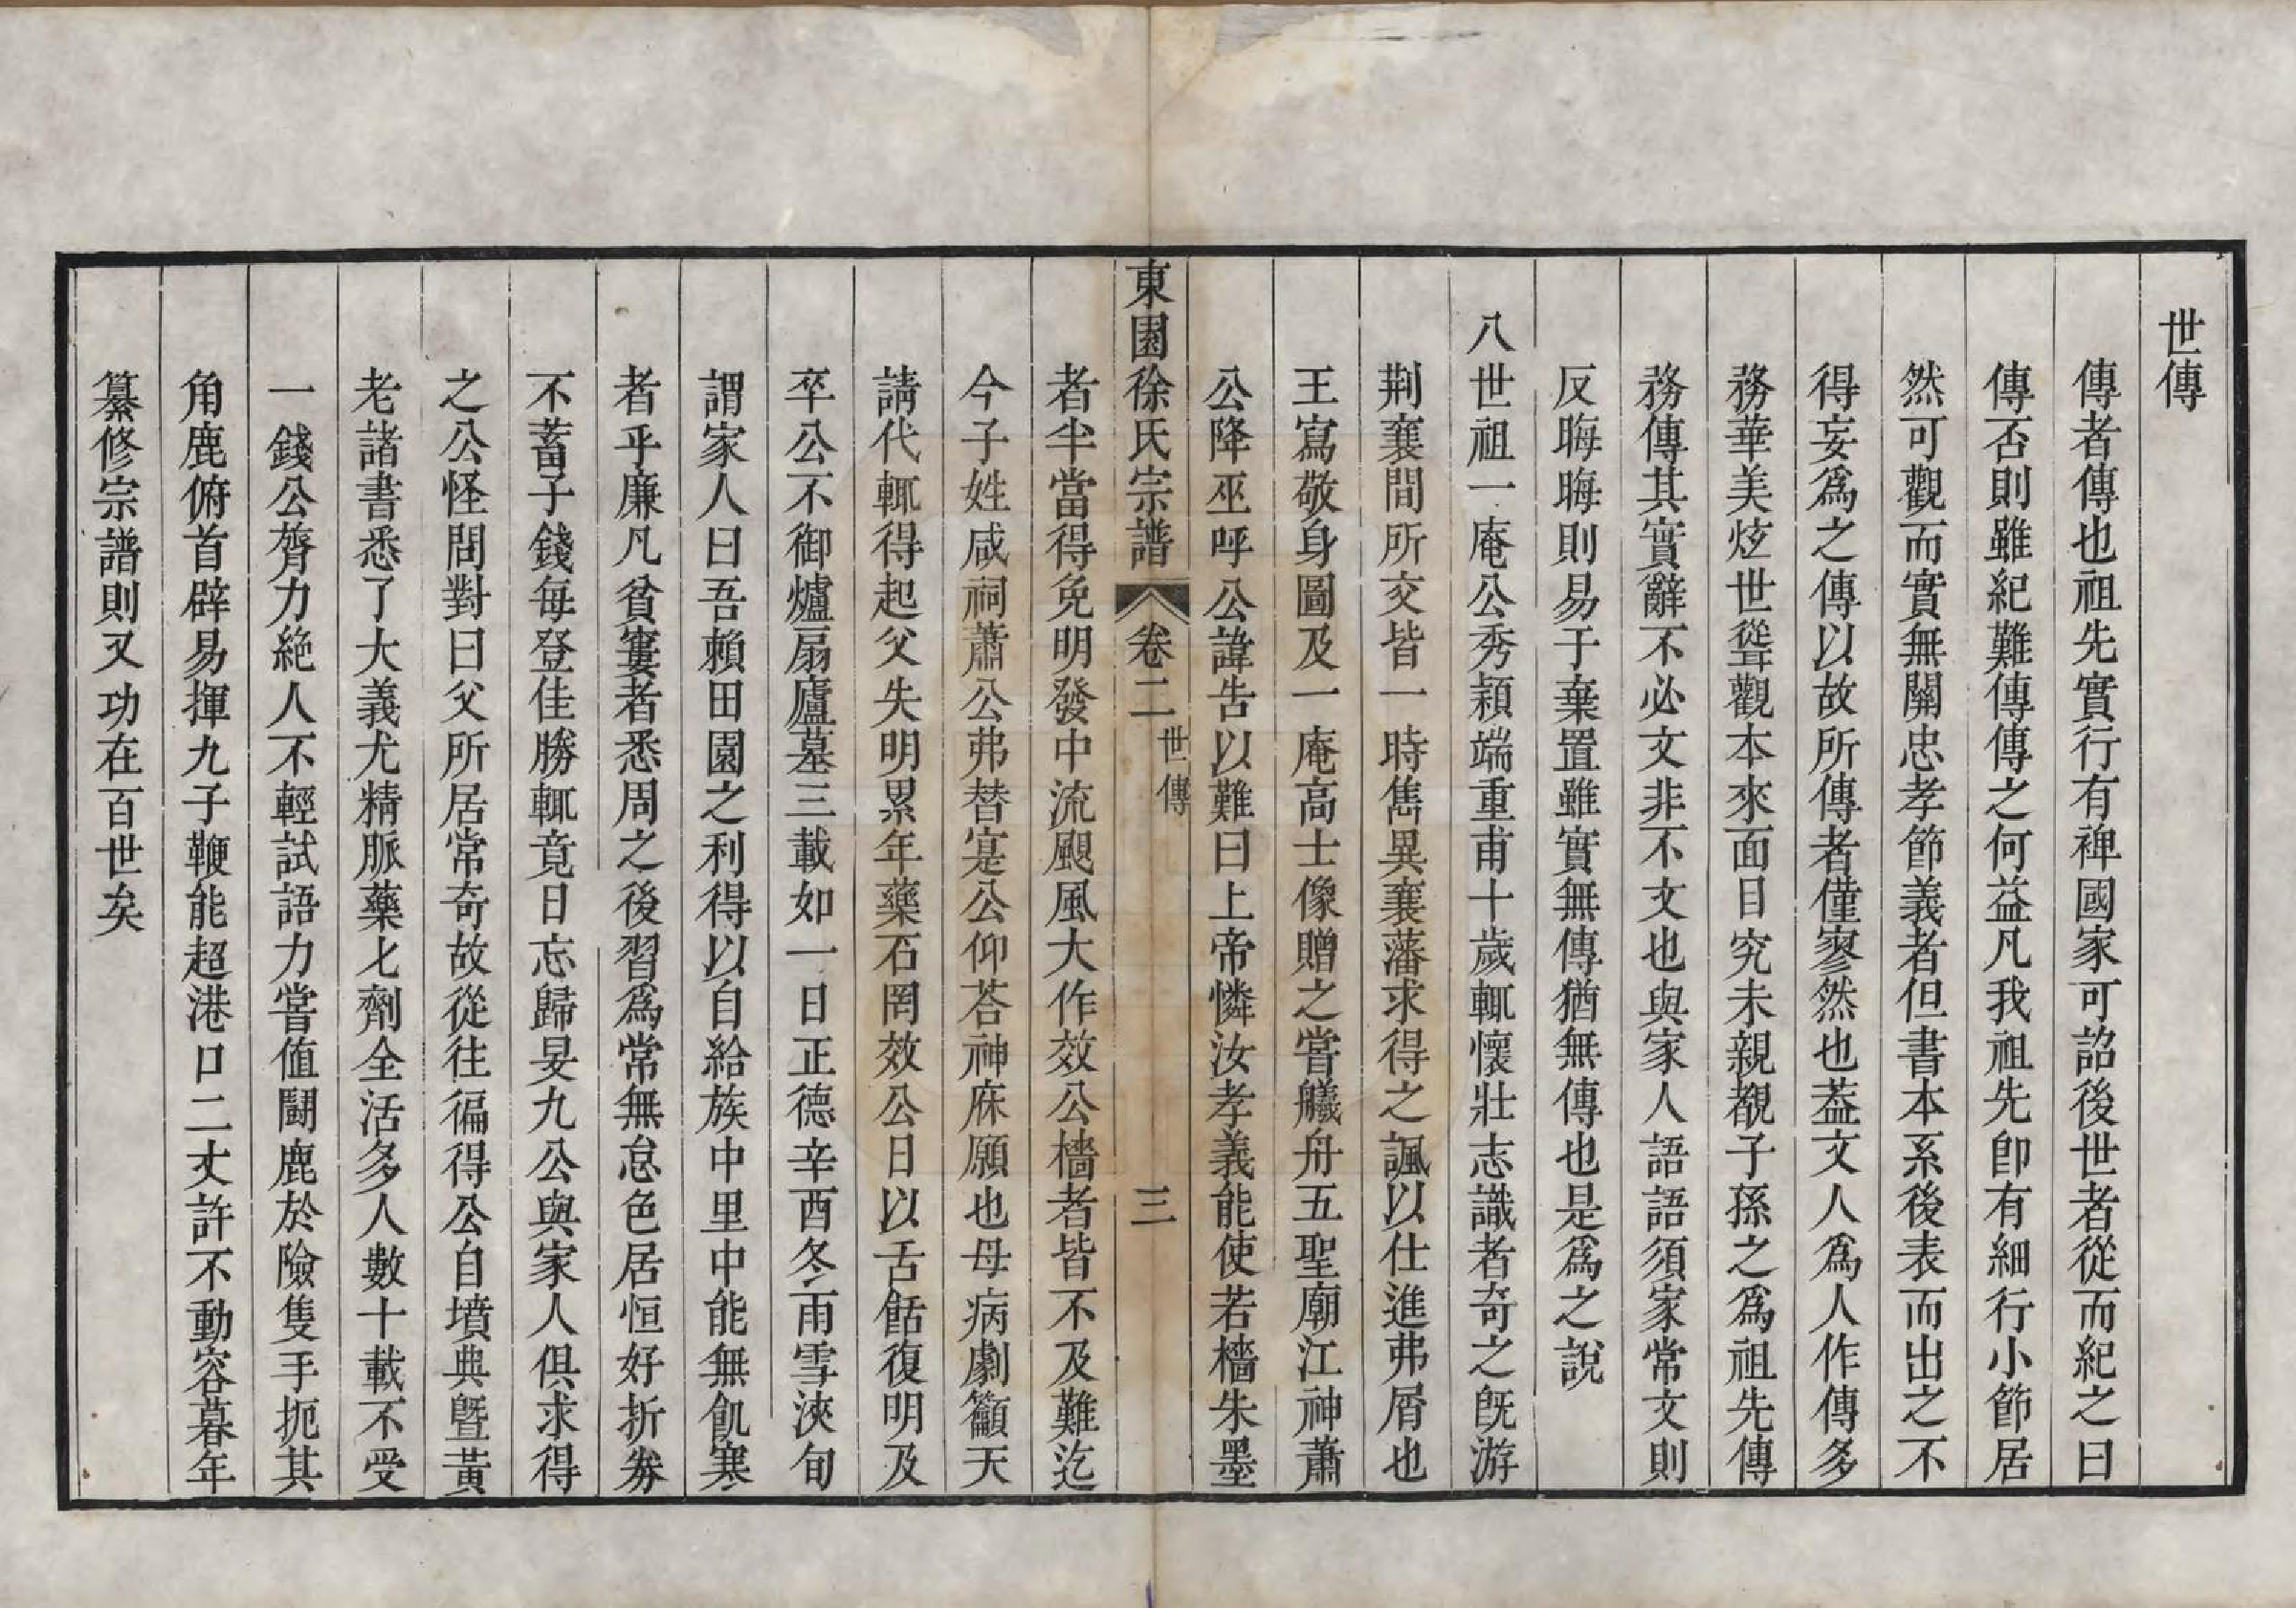 世傳
傳者傳也祖先實行有裨國家可詔後世者從而紀之曰
傳否則雖紀難傳傳之何益凡我祖先卽有細行小節居
然可觀而實無關忠孝節義者但書本系後表而出之不
得妄爲之傳以故所傳者僅寥然也葢文人爲人作傳多
務華美炫世聳觀本來面目究未親覩子孫之爲祖先傳
務傳其實辭不必文非不文也與家人語語須家常文則
反晦晦則易于棄置雖實無傳猶無傳也是爲之說
八世祖一庵公秀穎端重甫十歲輒懷壯志識者奇之旣游
荆襄間所交皆一時雋異襄藩求得之諷以仕進弗屑也
王寫敬身圖及一庵高士像贈之嘗艤舟五聖廟江神蕭
公降巫呼公諱告以難曰上帝憐汝孝義能使若檣朱墨
東園徐氏宗譜 卷二 世傳 三
者半當得免明發中流颶風大作效公檣者皆不及難迄
今子姓咸祠蕭公弗替寔公仰荅神庥願也母病劇籲天
請代輒得起父失明累年藥石罔效公日以舌餂復明及
卒公不御爐扇廬墓三載如一日正德辛酉冬雨雪浹旬
謂家人曰吾賴田園之利得以自給族中里中能無飢寒
者乎廉凡貧寠者悉周之後習爲常無怠色居恒好折券
不蓄子錢每登佳勝輒竟日忘歸旻九公與家人俱求得
之公怪問對曰父所居常奇故從往徧得公自墳典曁黃
老諸書悉了大義尤精脈藥匕劑全活多人數十載不受
一錢公膂力絶人不輕試語力嘗值鬭鹿於險隻手扼其
角鹿俯首辟易揮九子鞭能超港口二丈許不動容暮年
纂修宗譜則又功在百世矣